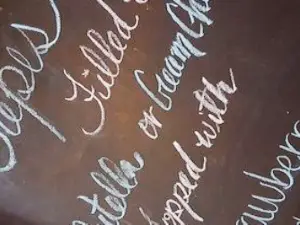 repes
Filled
utella or Cream Ch
opped with
awberr